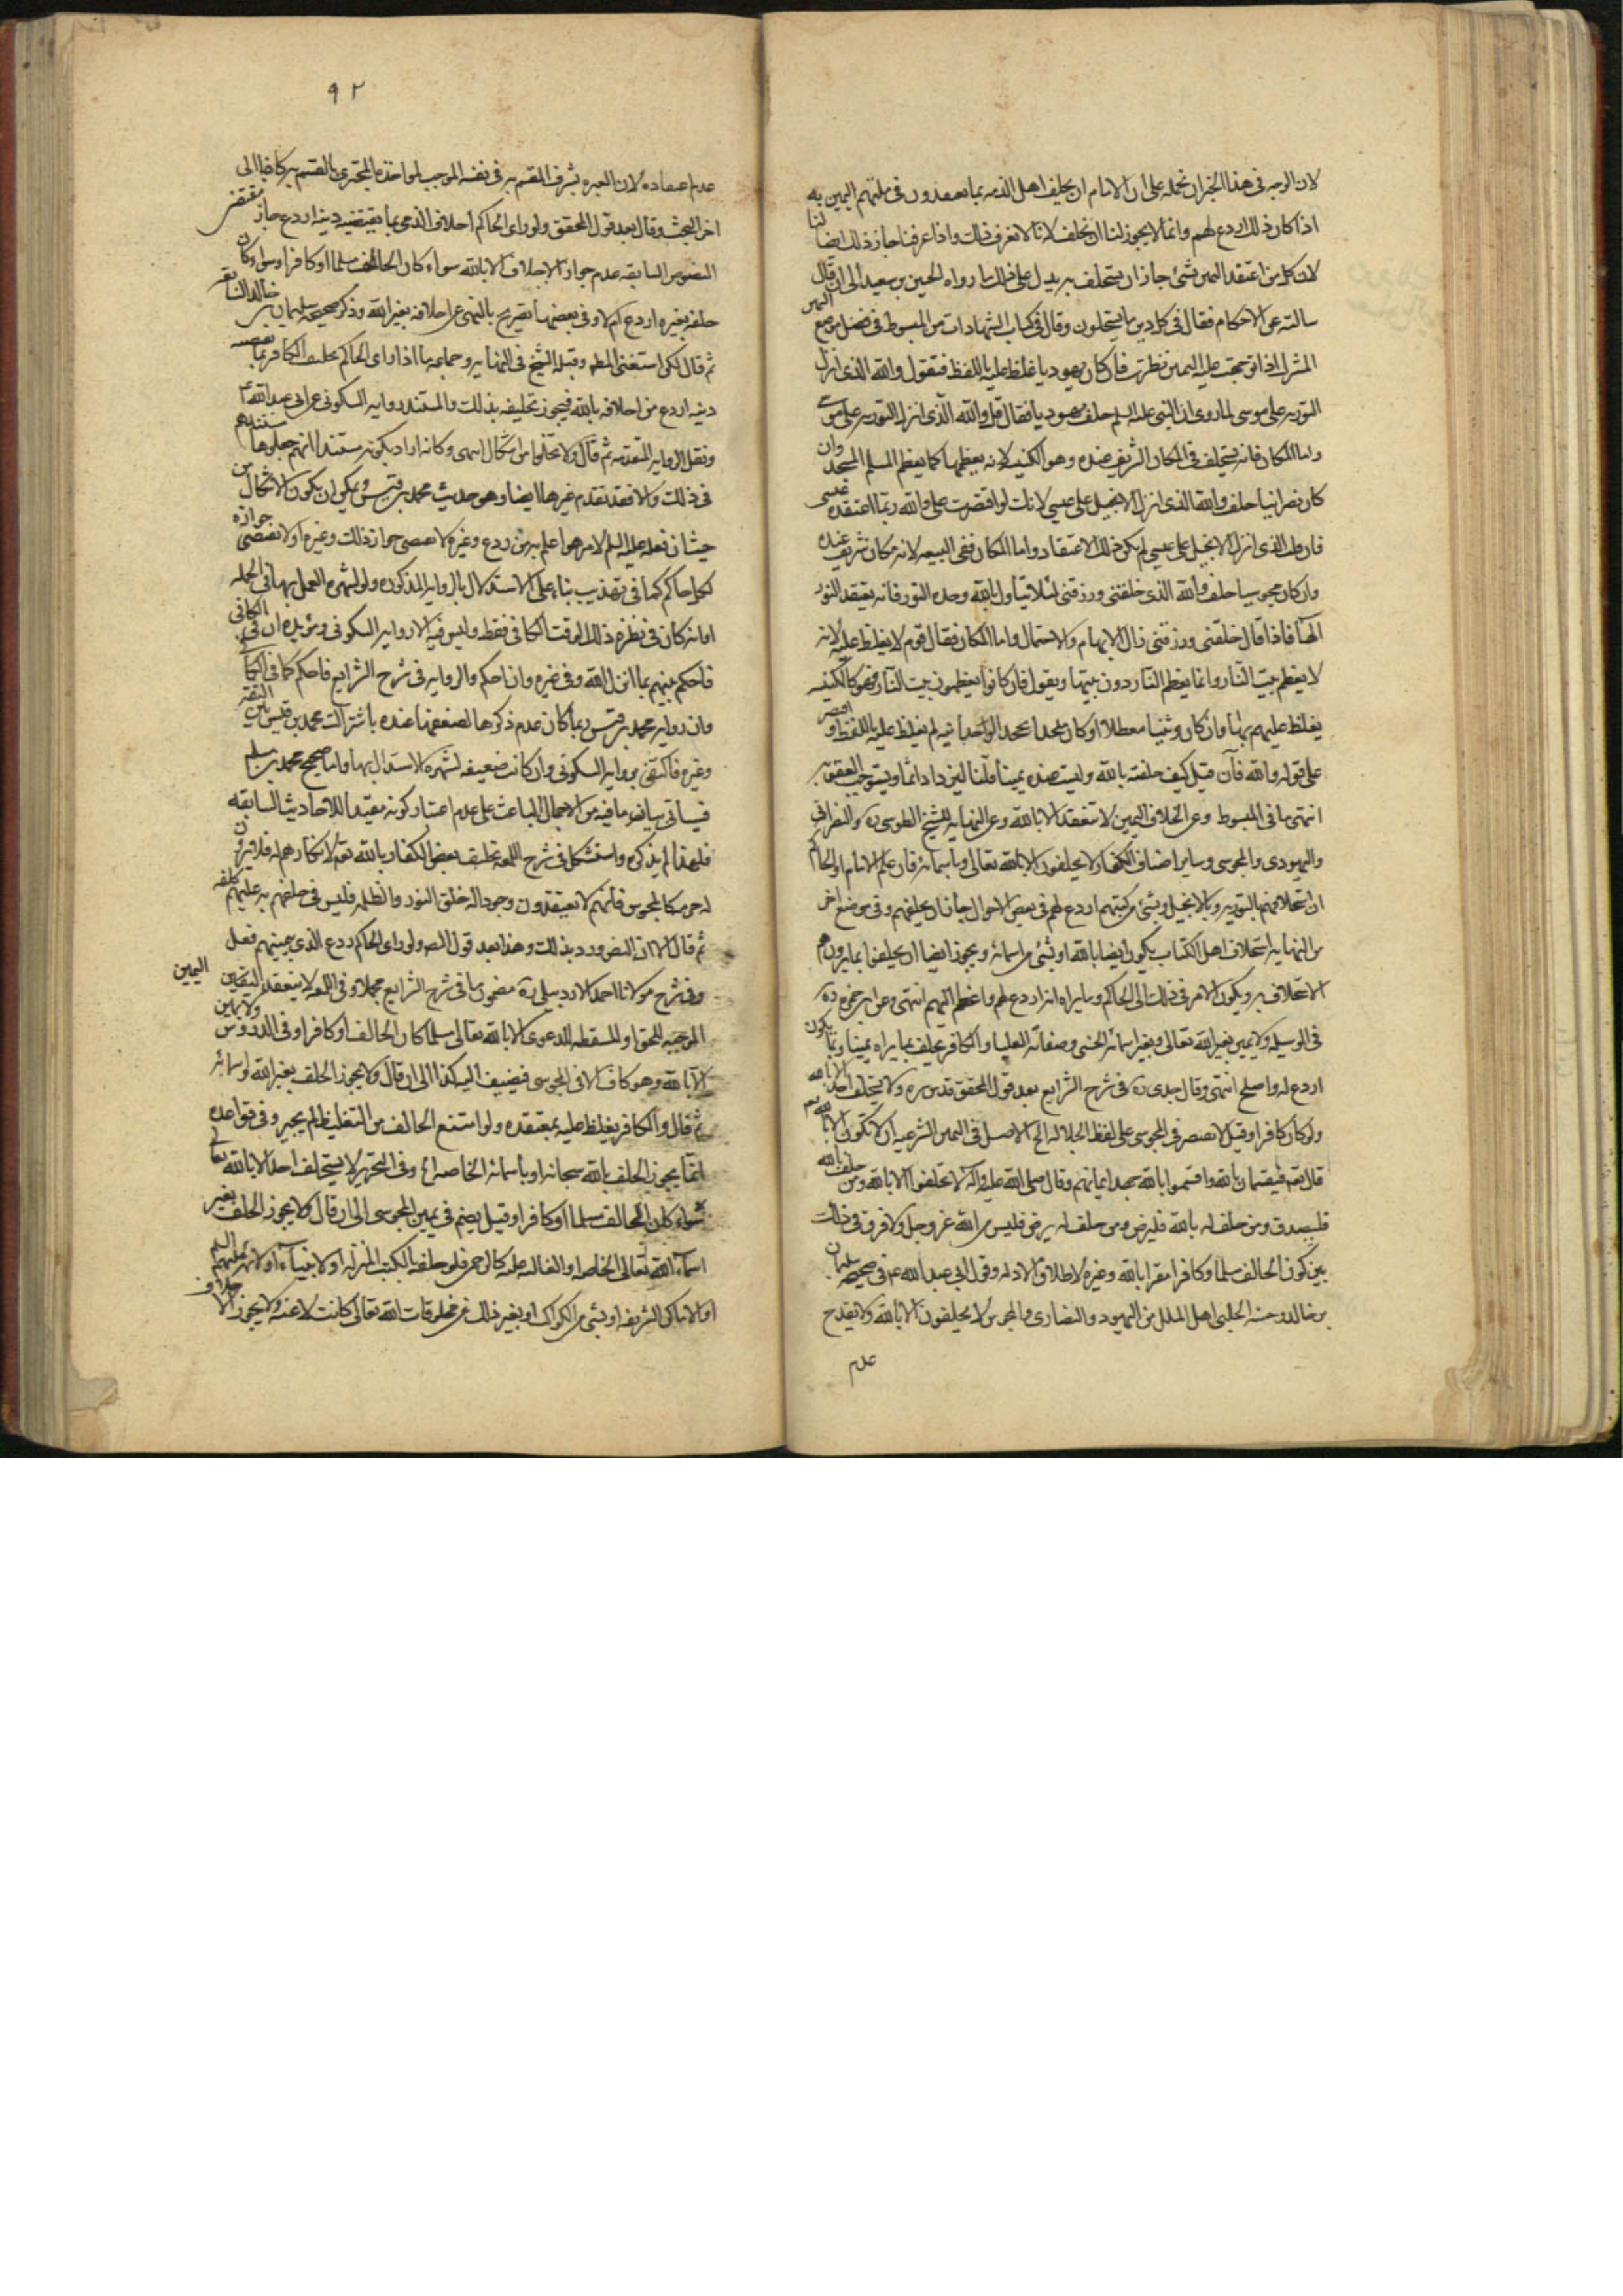 لان الوجه فى هذا الخبر ان نحمله على ان الامام ان يحلف اهل الذمه بما يعتقدون فى ملتهم اليمين به
اذا كان ذلك اردع لهم وانما لا يجوز لنا ان نحلف لانا لا نعرف ذلك واذا عرفنا جاز ذلك ايضا لنا
لان كل من اعتقد اليمين بشئ جاز ان يستحلف به يدل على ذلك ما رواه الحسين بن سعيد الى ان قال
سالته عن الاحكام فقال فى كل دين ما يستحلون وقال فى كتاب الشهادات من المبسوط فى فصل موضع اليمين
المشرك اذا توجهت عليه اليمين نظرت فان كان يهوديا غلظ عليه باللفظ فتقول والله الذى انزل
التوريه على موسى لما روى ان النبى عليه السلم حلف يهوديا فقال قل والله الذى انزل التوريه على موسى
واما المكان فانه يستحلف فى المكان الشريف عنده وهو الكنيسه لانه يعظمها كما يعظم المسلم المسجد وان
كان نصرانيا حلف والله الذى انزل الانجيل على عيسى لانك لو اقتصرت على والله ربما اعتقده عيسى
فان قلت الذى انزل الانجيل على عيسى لم يكن ذلك الاعتقاد واما المكان ففى البيعه لانه مكان شريف عنده
وان كان مجوسيا حلف والله الذى خلقنى ورزقنى لئلا يتاول بالله وحده النور فانه يعتقد النور
الها فاذا قال خلقنى ورزقنى زال الابهام والاحتمال واما المكان فقال قوم لا يغلظ عليه لانه
لا يعظم بيت النار وانما يعظم النار دون بيتها ويقول فان كانوا يعظمون بيت النار فهو كالكنيسه
يغلظ عليهم بها وان كان وثنيا معطلا او كان ملحدا يجحد الوحدانيه لم يغلظ عليه باللفظ و اقتصر
على قوله والله فان قيل كيف حلفته بالله وليست عنده يمينا قلنا ليزداد اثما ويستوجب العقوبه
انتهى ما فى المبسوط وعن الخلاف اليمين لا تنعقد الا بالله وعن النهايه للشيخ الطوسى ره والنصرانى
واليهودى والمجوسى وساير اصناف الكفار لا يحلفون الا بالله تعالى وباسمائه فان علم الامام او الحاكم
ان استحلافهم بالتوريه وبالانجيل وبشئ من كتبهم اردع لهم فى بعض الاحوال جاز ان يحلفهم وفى موضع اخر
من النهايه استحلاف اهل الكتاب يكون ايضا بالله او بشئ من اسمائه ويجوز ايضا ان يحلفوا بما يرون هم
الاستحلاف به ويكون الامر فى ذلك الى الحاكم وما يراه انه اردع لهم واعظم اليهم انتهى وعن ابن حمزه ره
فى الوسيله ولا يمين بغير الله تعالى وبغير اسمائه الحسنى وصفاته العليا والكافر يحلف بما يراه يمينا وبما يكون
اردع له واصلح انتهى وقال جدى ره فى شرح الشرايع بعد قول المحقق قدس سره ولا يستحلف احد الا بالله
ولو كان كافرا وقيل لا يقتصر فى المجوسى على لفظ الجلاله الخ الاصل فى اليمين الشرعيه ان لا تكون الا بالله تعم
قال تعم فيقسمان بالله واقسموا بالله جهد ايمانهم وقال صلى الله عليه واله لا تحلفوا الا بالله ومن حلف بالله
فليصدق ومن حلف له بالله فليرض ومن حلف له يرض فليس من الله عز وجل ولا فرق فى ذلك
بين كون الحالف مسلما وكافرا مقرا بالله وغيره لاطلاق الادله وقول ابى عبد الله ع فى صحيحه سليمان
بن خالد وحسنه الحلبى اهل الملل من اليهود والنصارى والمجوس لا يحلفون الا بالله ولا يقدح
عدم
٩٢
عدم اعتقاده لان العبره بشرف المقسم به فى نفسه الموجب لمواخذه المجترى بالقسم به كاذبا الى
اخر البحث وقال بعد قول المحقق ولو راى الحاكم احلاف الذمى بما يقتضيه دينه اردع جاز مقتضى
النصوص السابقه عدم جواز الاحلاف الا بالله سواء كان الحالف مسلما او كافرا وسواء كان
حلفه بغيره اردع ام لا وفى بعضها تصريح بالنهى عن احلافه بغير الله وذكر صحيحه سليمان بن خالد السابقه
ثم قال لكن استثنى المص وقبله الشيخ فى النهايه وجماعه ما اذا راى الحاكم تحليف الكافر بما يقتضيه
دينه اردع من احلافه بالله فيجوز تحليفه بذلك والمستند روايه السكونى عن ابى عبد الله ع
ونقل الروايه المتقدمه ثم قال ولا تخلوا من اشكال انتهى وكانه اراد بكونه مستندا انهم جعلوها مستندهم
فى ذلك والا فقد تقدم غيرها ايضا وهو حديث محمد بن قيس ويمكن ان يكون الاشكال من
حيث ان فعله عليه السلم لامر هو اعلم به من ردع وغيره لا يقتضى جواز ذلك وغيره او لا يقتضى جوازه
لكل حاكم كما فى تهذيب بناء على الاستدلال بالروايه المذكوره ولو لشهره العمل بها فى الجمله
اما انه كان فى نظره ذلك الوقت الكافى فقط وليس فيه الا روايه السكونى ويؤيده ان فى الكافى
فاحكم بينهم بما انزل الله وفى غيره وان احكم والروايه فى شرح الشرايع فاحكم كما فى الكافى
وان روايه محمد بن قيس ربما كان عدم ذكرها لضعفها عنده باشتراك محمد بن قيس بين الثقه
وغيره فاكتفى بروايه السكونى وان كانت ضعيفه لشهره الاستدلال بها واما صحيح محمد بن مسلم
فسياتى بيانه ما فيه من الاجمال الباعث على عدم اعتبار كونه مقيدا للاحاديث السابقه
فلهذا لم يذكره واستشكل فى شرح اللمعه تحليف بعض الكفار بالله تعم لانكارهم له فلا يرون
له حرمه كالمجوس فانهم لا يعتقدون وجود اله خلق النور والظلمه فليس فى حلفهم به عليهم كلفه
ثم قال الا ان النص ورد بذلك وهذا بعد قول المص ولو راى الحاكم ردع الذمى بيمينهم فعل
وفى شرح مولانا احمد الاردبيلى ره مضمون ما فى شرح الشرايع مجملا وفى اللمعه لا ينعقد اليمين
الموجبه للحق او المسقطه للدعوى الا بالله تعالى مسلما كان الحالف او كافرا وفى الدروس ولا يمين
الا بالله وهو كاف الا فى المجوسى فيضيف اليه كذا الى ان قال ولا يجوز الحلف بغير الله واسمائه
ثم قال والكافر يغلظ عليه بمعتقده ولو امتنع الحالف من التغليظ لم يجبر وفى قواعده
انما يجوز الحلف بالله سبحانه او باسمائه الخاصه وفى التحرير لا يستحلف احد الا بالله تعالى
سواء كان الحالف مسلما او كافرا وقيل يضم فى يمين المجوسى الى ان قال ولا يجوز الحلف بغير
اسماء الله تعالى الخاصه او الغالبه عليه كالرحمن فلو حلفه بالكتب المنزله او الانبياء او الائمه عليهم السلم
او الاماكن الشريفه او بشئ من الكواكب او بغير ذلك من مخلوقات الله تعالى كانت لاغيه ولا يجوز الا